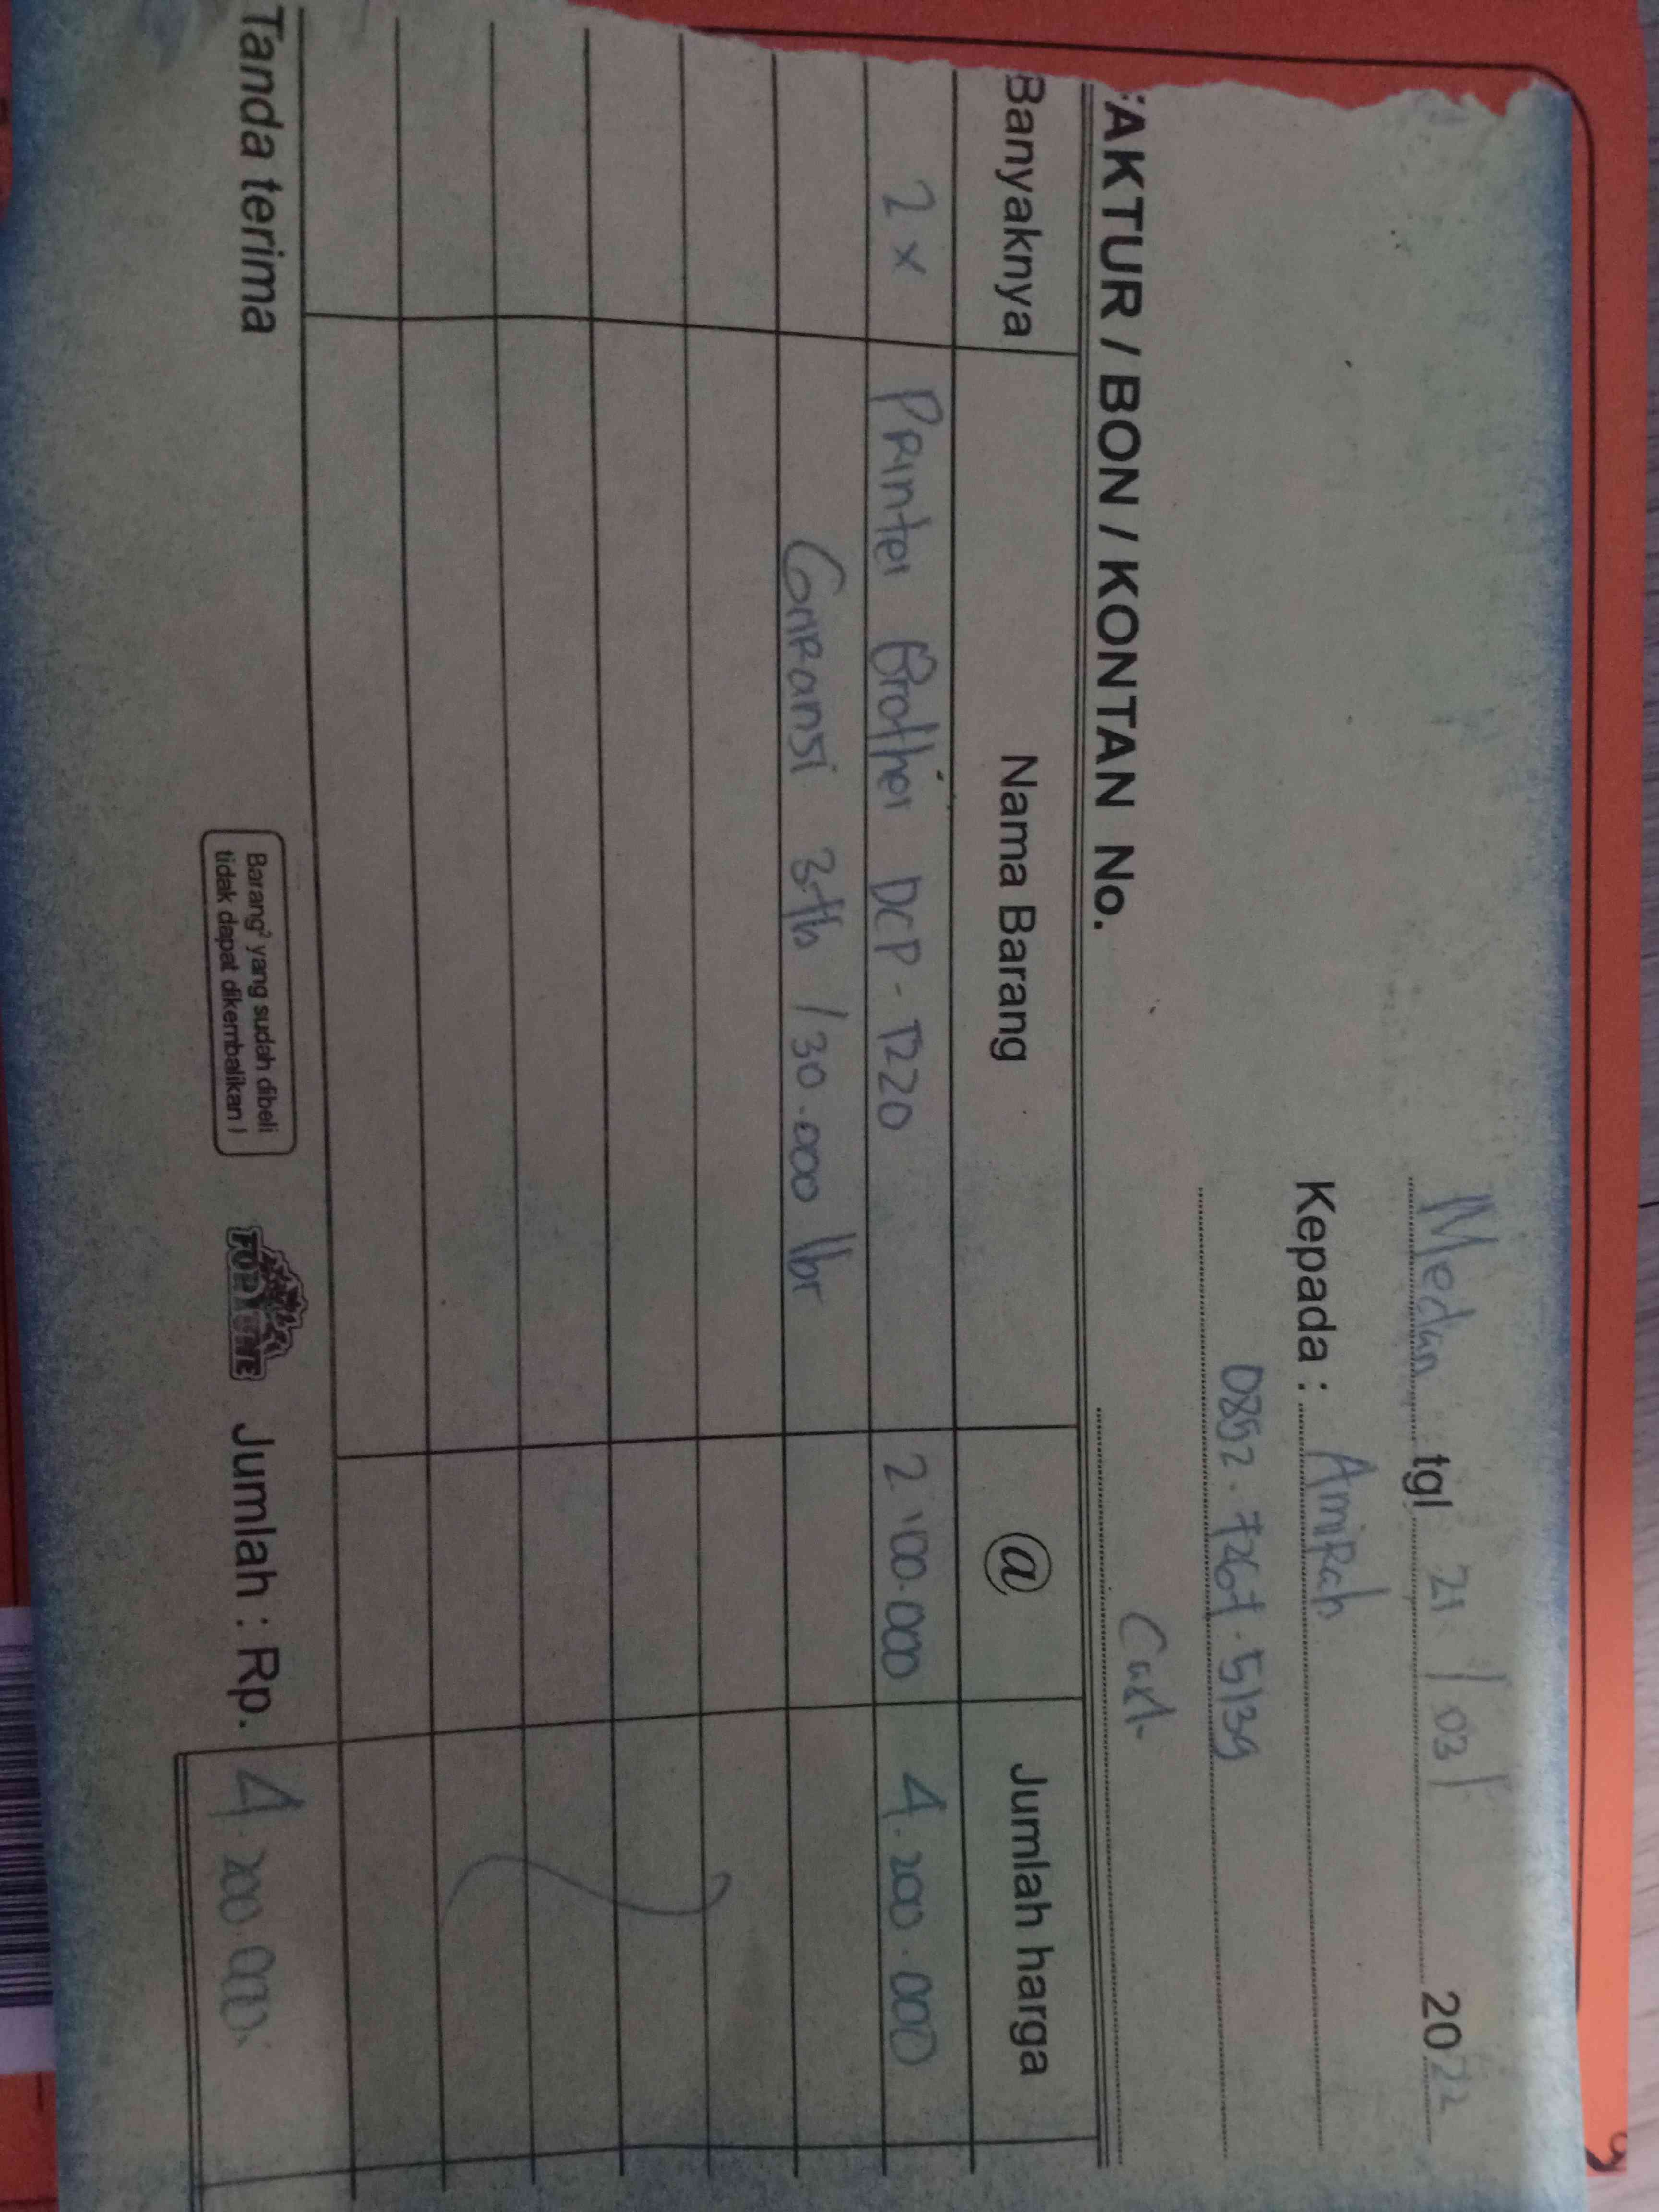 Medan tgl 21 / 03 / 2022
Kepada : Amirah
0852 - 7267 - 5139
FAKTUR / BON / KONTAN No. Cash
Banyaknya Nama Barang @ Jumlah harga
2 x Printer Brother DCP - T220 2.100.000 4.200.000
Garansi 3 th / 30.000 lbr
Tanda terima Barang² yang sudah dibeli
tidak dapat dikembalikan !
FORTUNE
Jumlah : Rp. 4.200.000